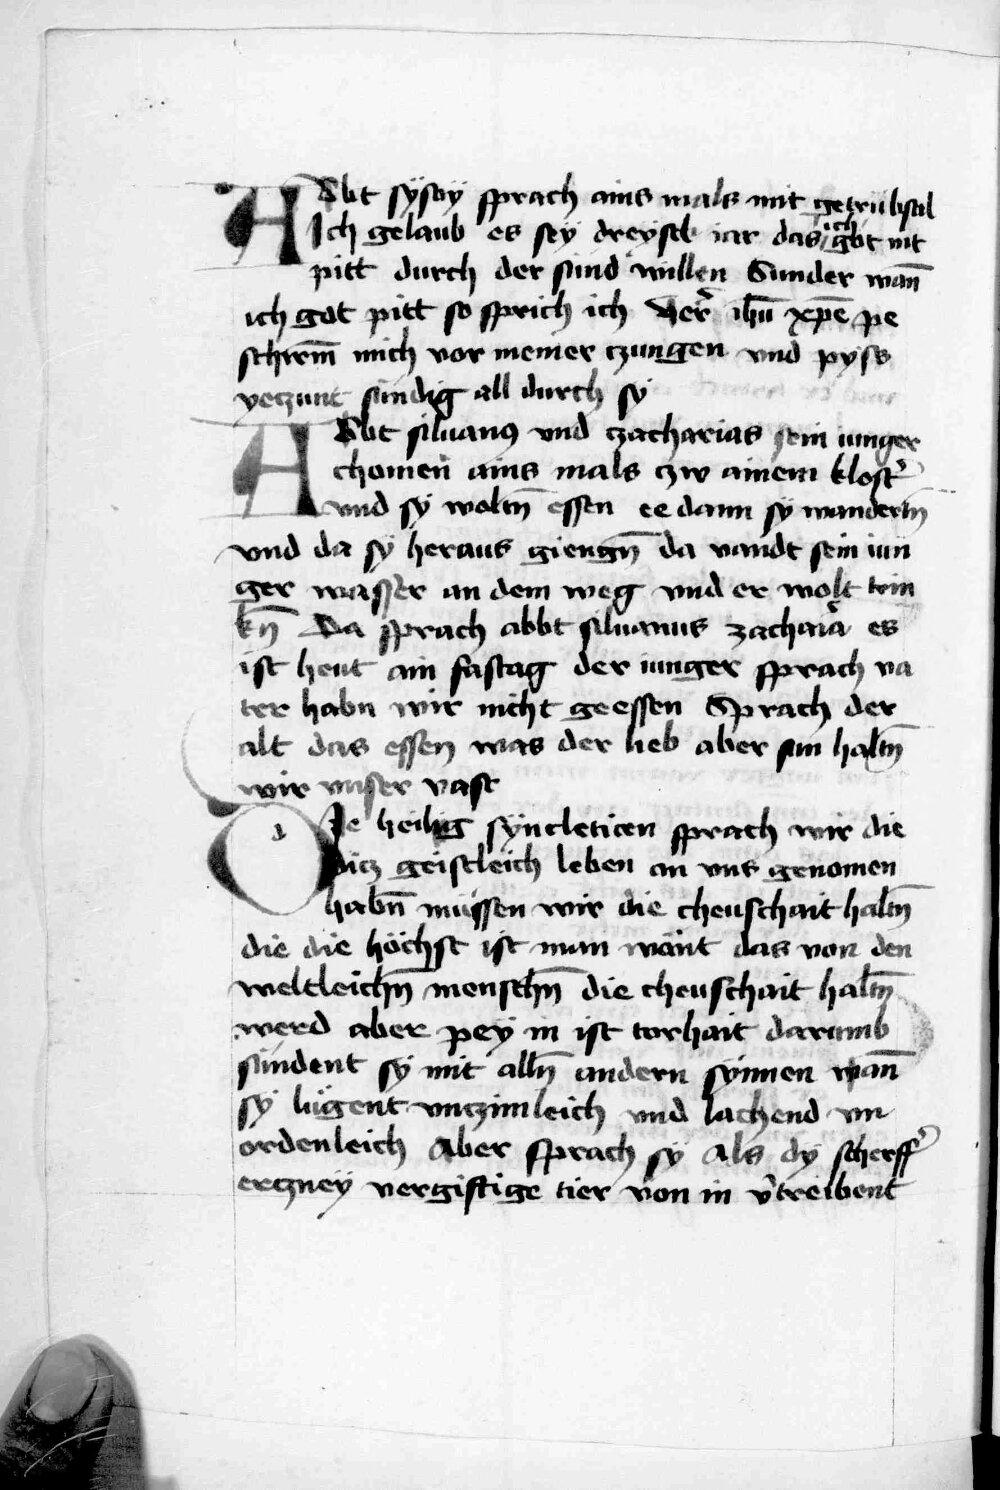 Abbt sÿsoÿ sprach ains mals mit getrübsal
Ich gelaub es seÿ dreyssk iar das ich got nit
pitt durch der sünd willen Sunder wan̄
ich got pitt so sprich ich Her̄ ihū xp̄e pe
schrem̄ mich vor meiner czungen vnd pyss
yeczunt sündig all durch sÿ
Abbt siluanꝰ vnd czacharias sein iunger
chomen ains mals czw ainem klost᷑
vnd sÿ woltn̄ essen ee dann sÿ wandertn̄
vnd da sÿ heraus giengn̄ da vandt sein iun
ger wasser an dem weg vnd er wolt trin
kn̄ Da sprach abbt siluanus zacharia es
ist heut ain fastag der iunger sprach va
ter habn wir nicht geessen Sprach der
alt das essen was der lieb aber sun haltn̄
wir vnser vast
d Ie heilig sÿncleticen sprach wir die
dicz geistleich leben an vns genomen
habn̄ müssen wir die cheuschait haltn̄
die die höchst ist man wänt das von den
weltleichn̄ menschn̄ die cheuschait haltn̄
werd aber peÿ in ist torhait darumb
sündent sÿ mit alln̄ andern synnen wan̄
sÿ lügent vnczimleich vnd lachend vn
ordenleich Aber sprach sÿ Als dÿ scherff᷑
erczneÿ vergiftige tier von in v᷑treibent